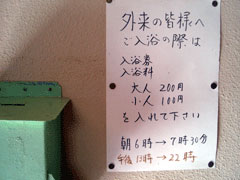 外来の皆様へ
ご入浴の際は
入浴券
入浴料
大人 200円
小人 100円
を入れて下さい
朝6時→7時30分
午後13時→22時